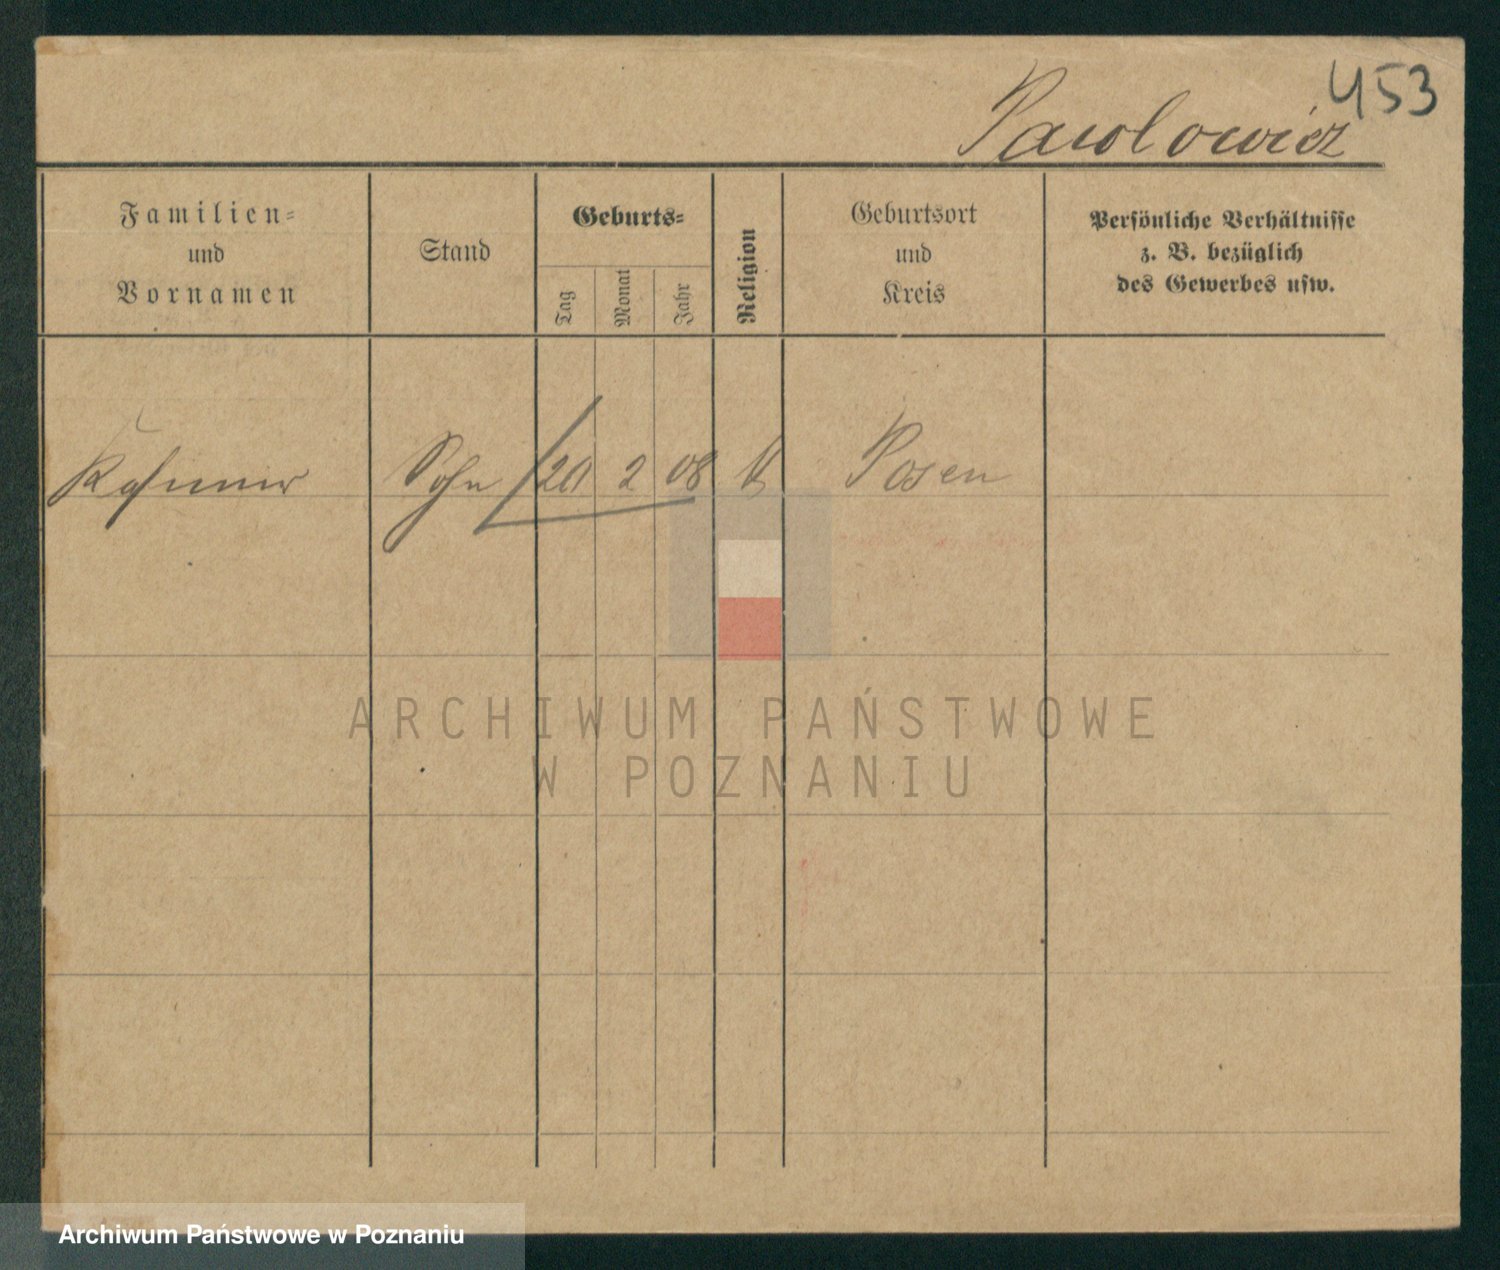 453
Pawlowicz
Familien=
und
Vornamen
Stand
Geburts=
Tag
Monat
Jahr
Religion
Geburtsort
und
Kreis
Persönliche Verhältnisse
z. B. bezüglich
des Gewerbes usw.
Kasimir Sohn 20 2 08 Posen
ARCHIWUM PAŃSTWOWE
W POZNANIU
Archiwum Państwowe w Poznaniu